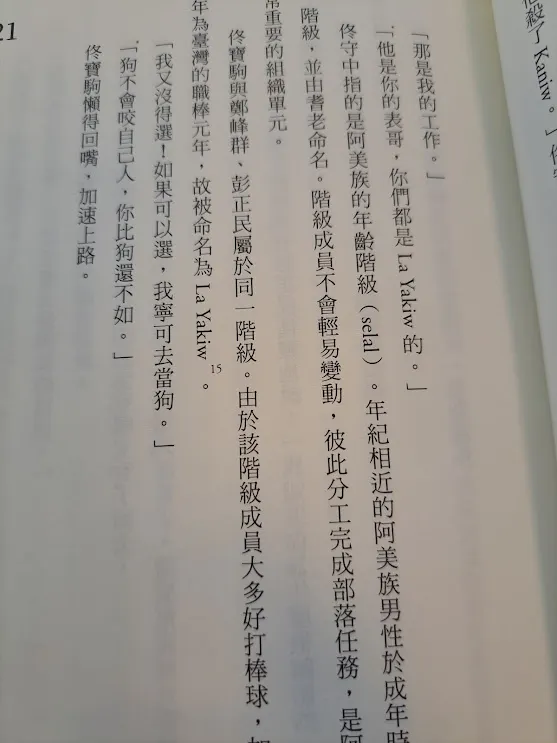 他殺了 Kaniw。」
「那是我的工作。」
「他是你的表哥，你們都是 La Yakiw 的。」
佟守中指的是阿美族的年齡階級（selal）。年紀相近的阿美族男性於成年時
階級，並由耆老命名。階級成員不會輕易變動，彼此分工完成部落任務，是阿
常重要的組織單元。
佟寶駒與鄭峰群、彭正民屬於同一階級。由於該階級成員大多好打棒球，加
年為臺灣的職棒元年，故被命名為 La Yakiw 15。
「我又沒得選！如果可以選，我寧可去當狗。」
「狗不會咬自己人，你比狗還不如。」
佟寶駒懶得回嘴，加速上路。
21